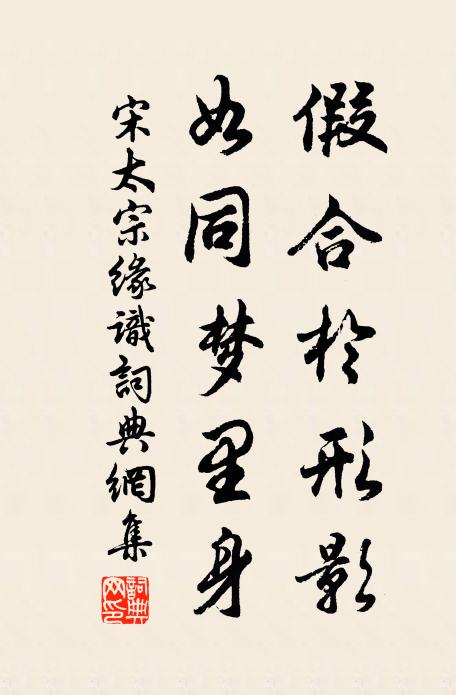 假合於形影
如同梦里身
宋太宗缘識詞典網集
詞典网印